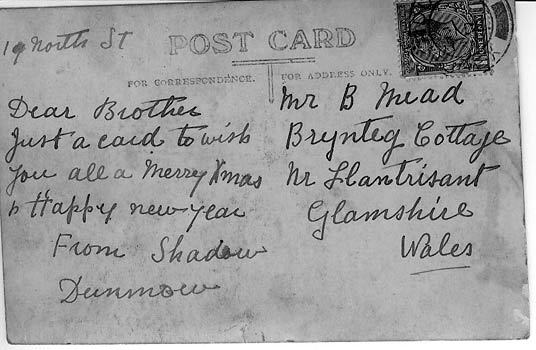 19 North St
POST CARD
FOR CORRESPONDENCE.
FOR ADDRESS ONLY.
Dear Brother
Just a card to wish
you all a Merry Xmas
& Happy new year
From Shadow
Dunmow
Mr B Mead
Brynteg Cottage
Nr Llantrisant
Glamshire
Wales